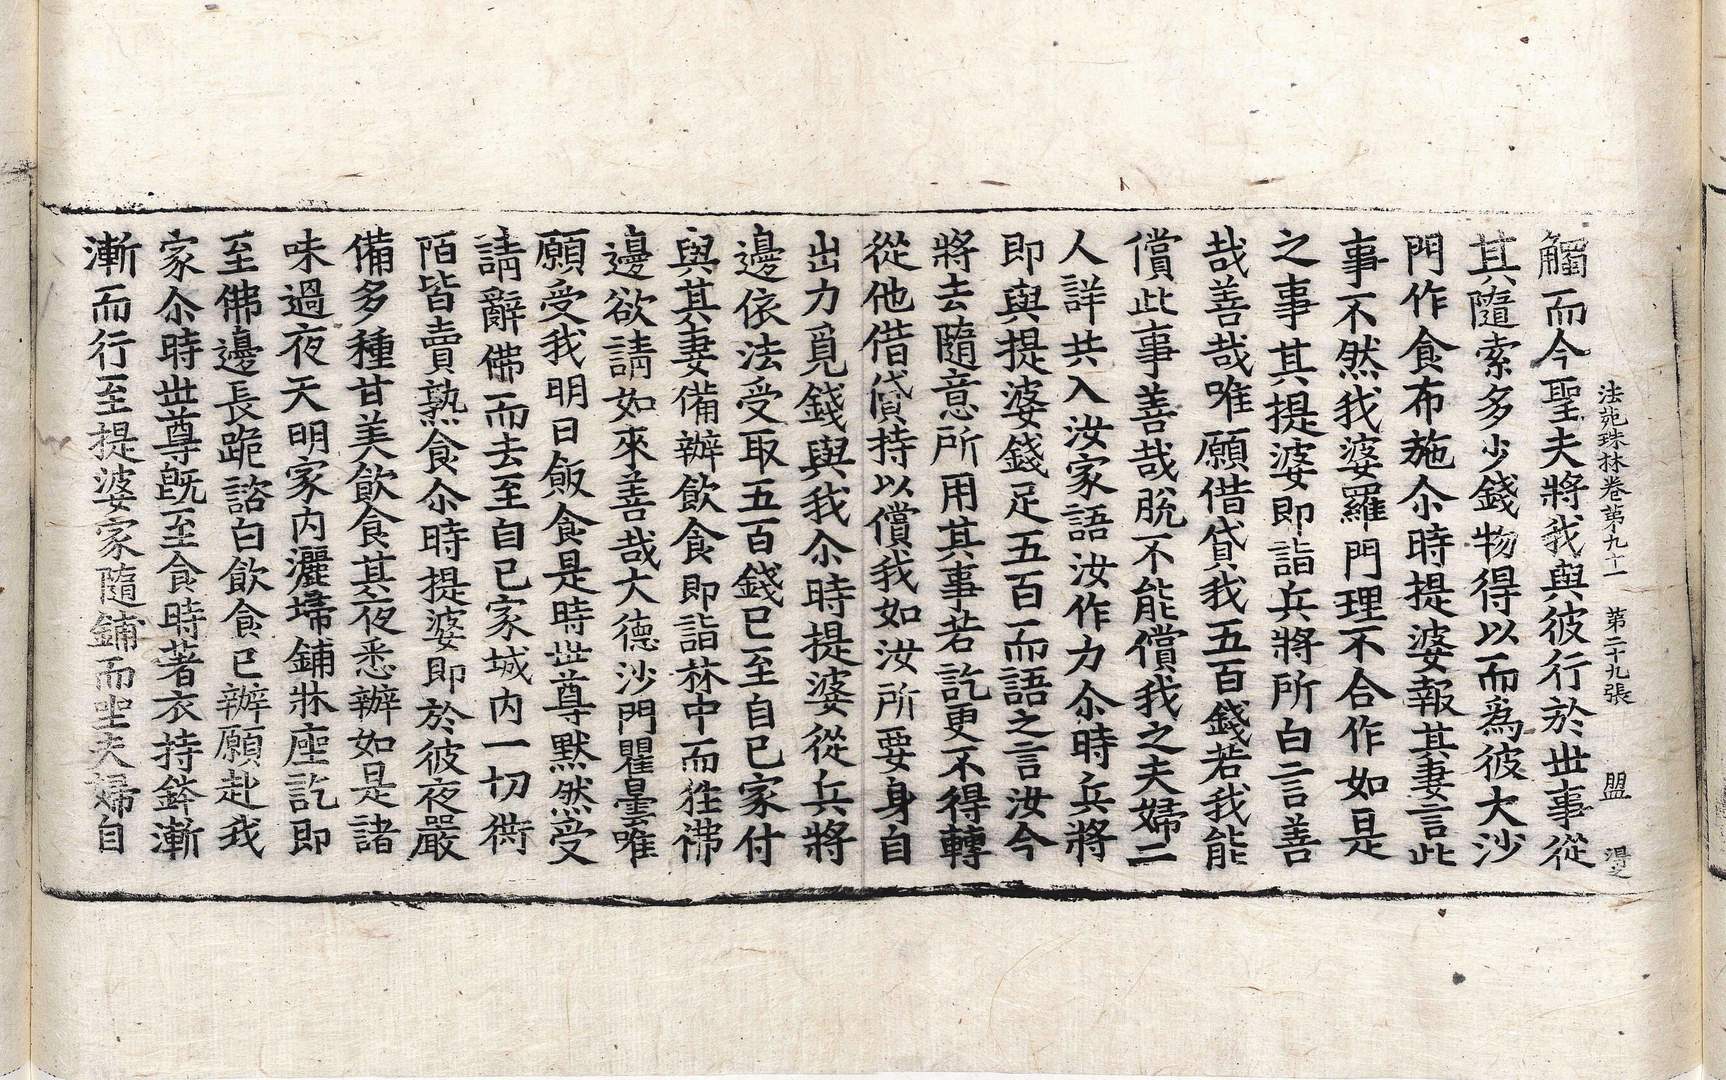 法苑珠林卷第九十一 第二十九張 盟 得之
觸而今聖夫將我與彼行於世事從
其隨索多少錢物得以而爲彼大沙
門作食布施尒時提婆報其妻言此
事不然我婆羅門理不合作如是
之事其提婆即詣兵將所白言善
哉善哉唯願借貸我五百錢若我能
償此事善哉脫不能償我之夫婦二
人詳共入汝家語汝作力尒時兵將
即與提婆錢足五百而語之言汝今
將去隨意所用其事若訖更不得轉
從他借貸持以償我如汝所要身自
出力覓錢與我尒時提婆從兵將
邊依法受取五百錢已至自己家付
與其妻備辦飲食即詣林中而往佛
邊欲請如來善哉大德沙門瞿曇唯
願受我明日飯食是時世尊默然受
請辭佛而去至自己家城內一切衖
陌皆賣熟食尒時提婆即於彼夜嚴
備多種甘美飲食其夜悉辦如是諸
味過夜天明家內灑埽鋪牀座訖即
至佛邊長跪諮白飲食已辦願赴我
家尒時世尊旣至食時著衣持鉢漸
漸而行至提婆家隨鋪而坐夫婦自